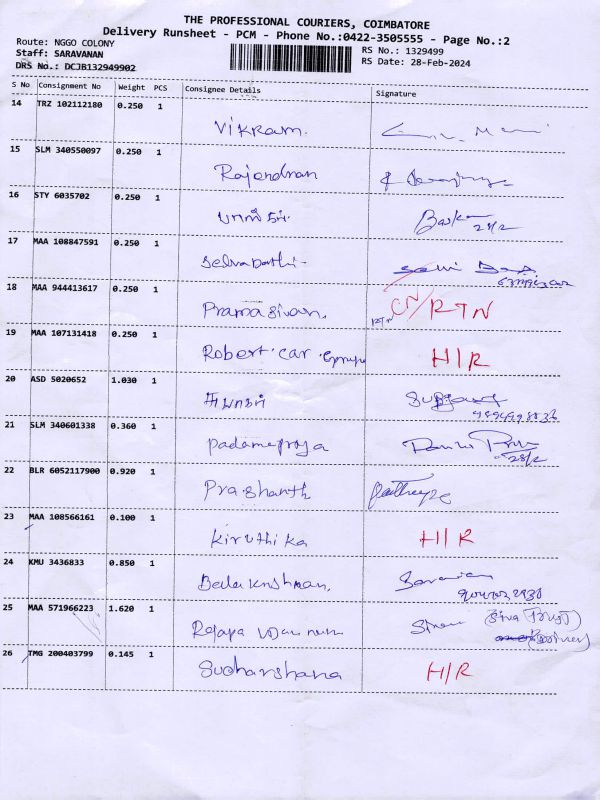 THE PROFESSIONAL COURIERS, COIMBATORE
Delivery Runsheet - PCM - Phone No.:0422-3505555 - Page No.:2
Route: NGGO COLONY
Staff: SARAVANAN
DRS No.: DCJB132949902
RS No.: 1329499
RS Date: 28-Feb-2024
S No Consignment No Weight PCS Consignee Details Signature
14 TRZ 102112180 0.250 1
Vikram.
15 SLM 340550097 0.250 1
Rajendran
16 STY 6035702 0.250 1
Baskar
28/2
17 MAA 108847591 0.250 1
Selvapathi
18 MAA 944413617 0.250 1
Pramasivan. CN/RTN
19 MAA 107131418 0.250 1
Robert.car. H/R
20 ASD 5020652 1.030 1
21 SLM 340601338 0.360 1
28/2
22 BLR 6052117900 0.920 1
Prashanth
23 MAA 108566161 0.100 1
Kiruthika H/R
24 KMU 3436833 0.850 1
Balakrishnan.
25 MAA 571966223 1.620 1
26 TMG 200403799 0.145 1
Sudharshana H/R